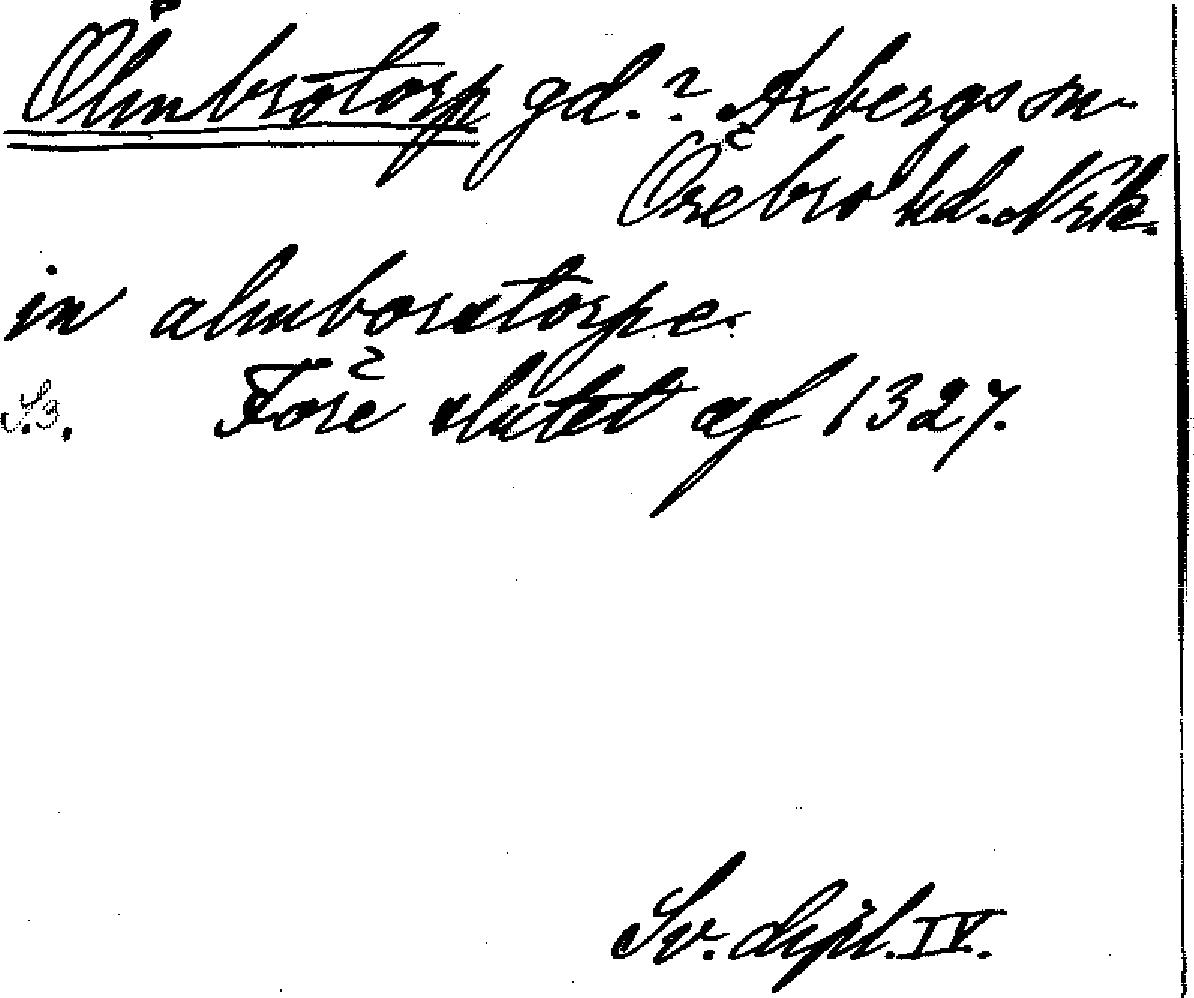 Ölmbrotorp gd.? Axbergs sn.
Örebro hd. Nrk.
in almborstorpe.
S. 3. Före slutet af 1327.
Sv. dipl. IV.